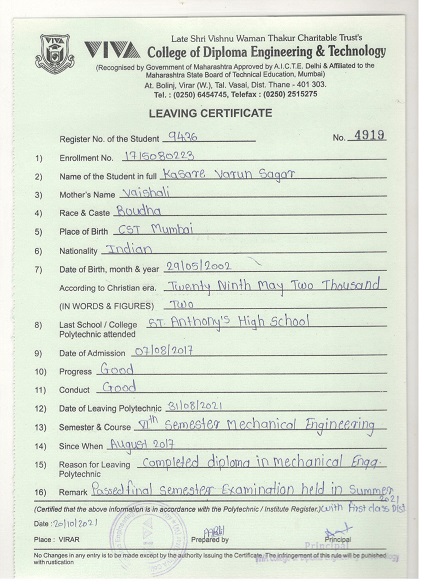 Late Shri Vishnu Waman Thakur Charitable Trust's
VIVA College of Diploma Engineering & Technology
(Recognised by Government of Maharashtra Approved by A.I.C.T.E. Delhi & Affiliated to the
Maharashtra State Board of Technical Education, Mumbai)
At. Bolinj, Virar (W.), Tal. Vasai, Dist. Thane - 401 303.
Tel. : (0250) 6454745, Telefax : (0250) 2515275
LEAVING CERTIFICATE
Register No. of the Student 9436 No. 4919
1) Enrollment No. 1715080223
2) Name of the Student in full Kasare Varun Sagar
3) Mother's Name Vaishali
4) Race & Caste Boudha
5) Place of Birth CST Mumbai
6) Nationality Indian
7) Date of Birth, month & year 29/05/2002
According to Christian era. Twenty Ninth May Two Thousand
(IN WORDS & FIGURES) Two
8) Last School / College ST. Anthony's High School
Polytechnic attended
9) Date of Admission 07/08/2017
10) Progress Good
11) Conduct Good
12) Date of Leaving Polytechnic 31/08/2021
13) Semester & Course VIth Semester Mechanical Engineering
14) Since When August 2017
15) Reason for Leaving Completed diploma in mechanical Engg.
Polytechnic
16) Remark Passed final semester Examination held in Summer
2021
(Certified that the above information is in accordance with the Polytechnic / Institute Register.) with first class Dist
Date : 20/10/2021
Place : VIRAR Prepared by Principal
Principal
No Changes in any entry is to be made except by the authority issuing the Certificate. The infringement of this rule will be punished
with rustication